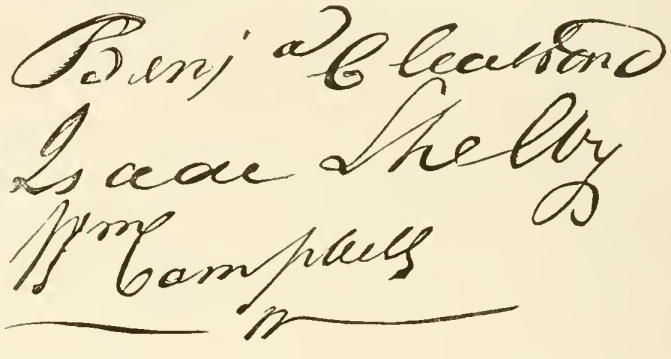 Benja Cleaveland
Isaac Shelby
Wm Campbell